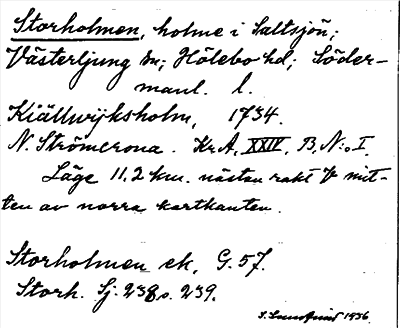 Storholmen, holme i Saltsjön;
Västerljung sn; Hölebo hd; Söder-
manl. l.
Kiällwijksholm, 1734.
N. Strömcrona. Kr.A, XXIV, B, N:o I.
Läge 11,2 km. nästan rakt V mit-
ten av norra kartkanten.
Storholmen ek, G. 57.
Storh. Sj. 238 s. 239.
1936